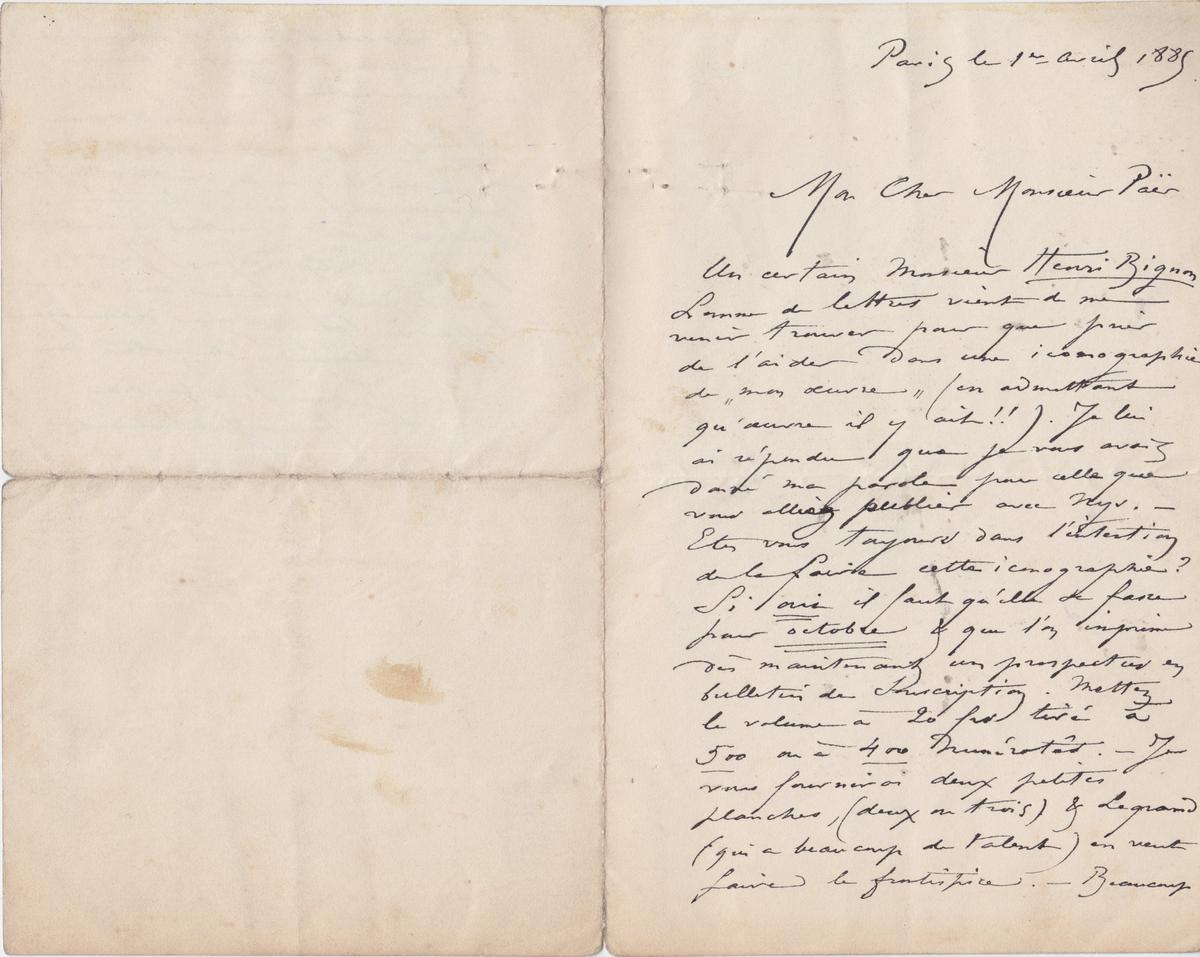 Paris le 1er Avril 1885
Mon Cher Monsieur Païr
Un certain Monsieur Henri Bignon
de lettres vient de me
venir trouver pour que
de l'aider dans une iconographie
de „mon œuvre„ (en admettant
qu'œuvre il y ait!!). Je lui
ai répondu que je vous avais
donné ma parole pour celle que
vous alliez publier avec Nys. —
Etes vous toujours dans l'intention
de la faire cette iconographie?
Si oui il faut qu'elle se fasse
pour octobre & que l'on imprime
dès maintenant un prospectus en
bulletin de Souscription. Mettez
le volume à 20 frs tiré à
500 ou à 400 Numérotés. — Je
vous fournirai deux petites
planches, (deux ou trois) & Legrand
(qui a beaucoup de talent) en veut
faire le frontispice. — Beaucoup